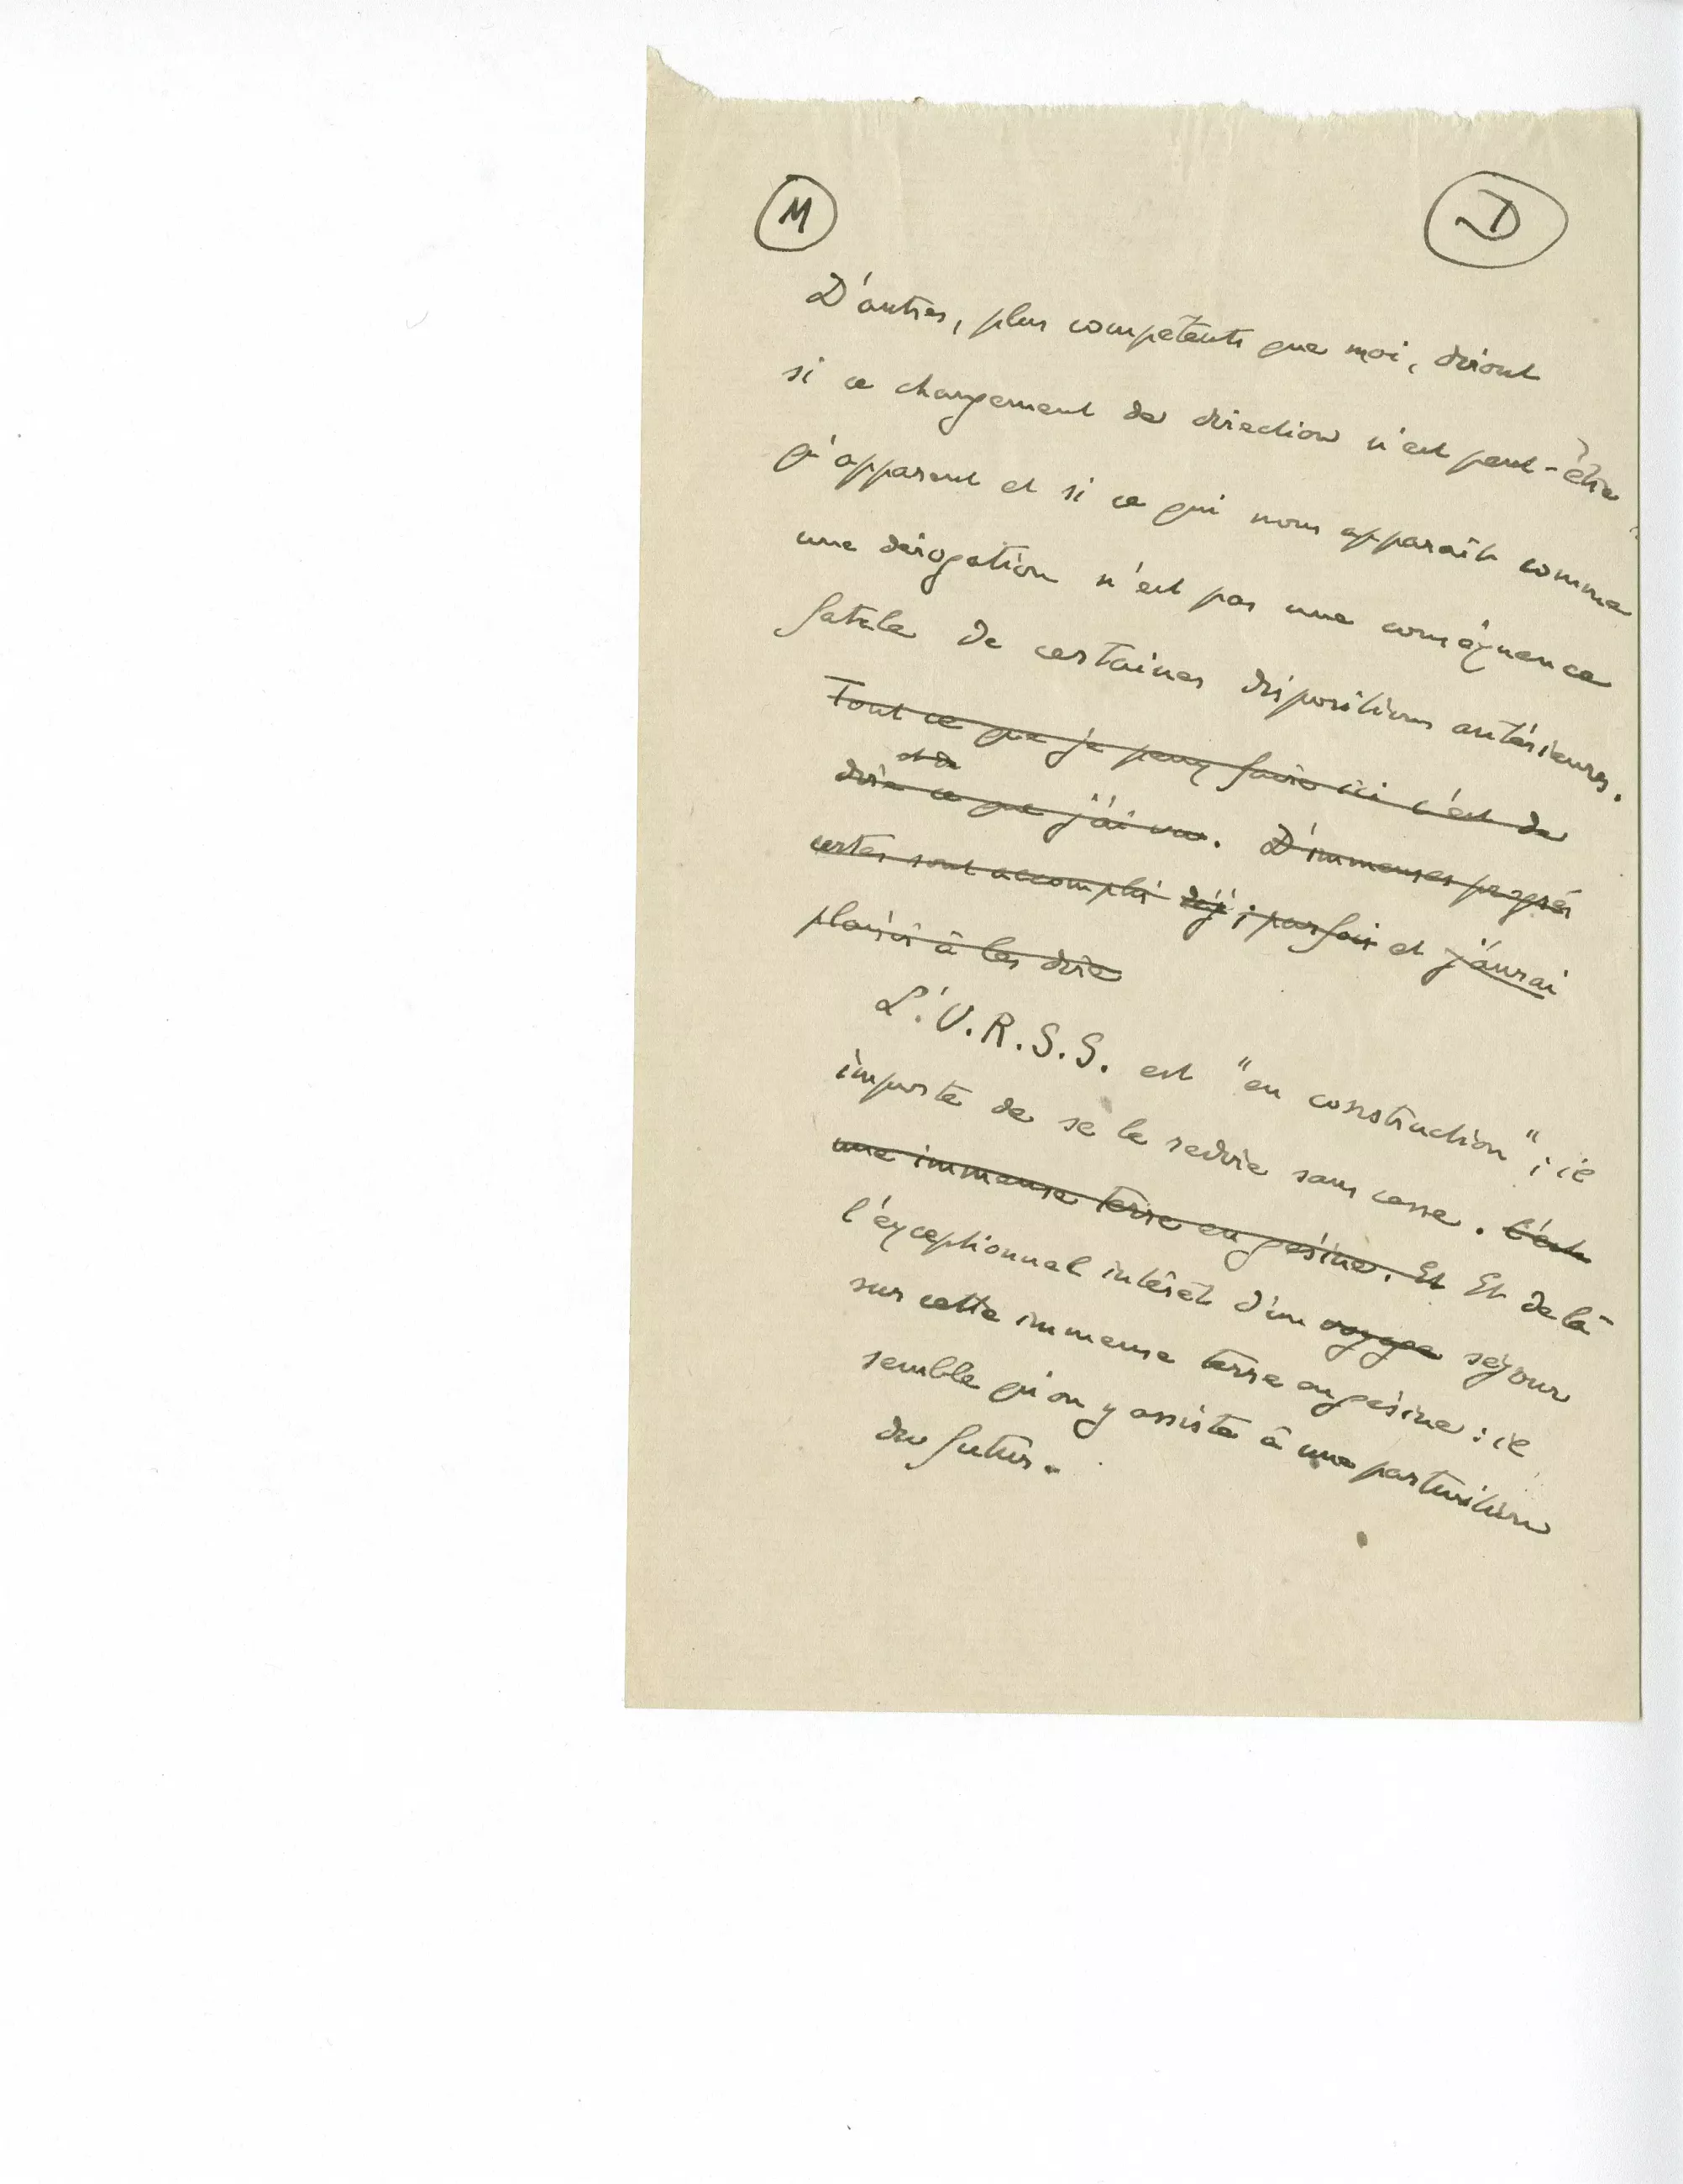 M D
D'autres, plus compétents que moi, diront
si ce changement de direction n'est peut-être
qu'apparent et si ce qui nous apparaît comme
une dérogation n'est pas une conséquence
fatale de certaines dispositions antérieures.
Tout ce que je peux faire ici c'est de
et de
dire ce que j'ai vu. D'immenses progrès
certes sont accomplis déjà ; parfois et j'aurai
plaisir à les dire
L'.U.R.S.S. est "en construction" ; il
importe de se le redire sans cesse. C'est
une immense terre en gésine. Et Et de là
l'exceptionnel intérêt d'un voyage séjour
sur cette immense terre en gésine : il
semble qu'on y assiste à une parturition
du futur.